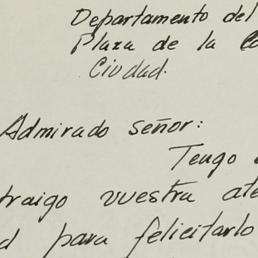 Departamento del
Plaza de la
Ciudad.
Admirado señor:
Tengo
traigo vuestra ate
d para felicitarlo